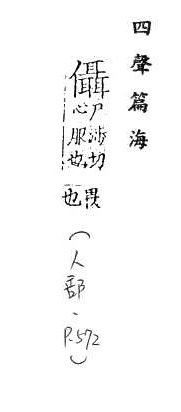 四聲篇海
㒤
尸涉切
心服也
畏
也
(人部、P.572)